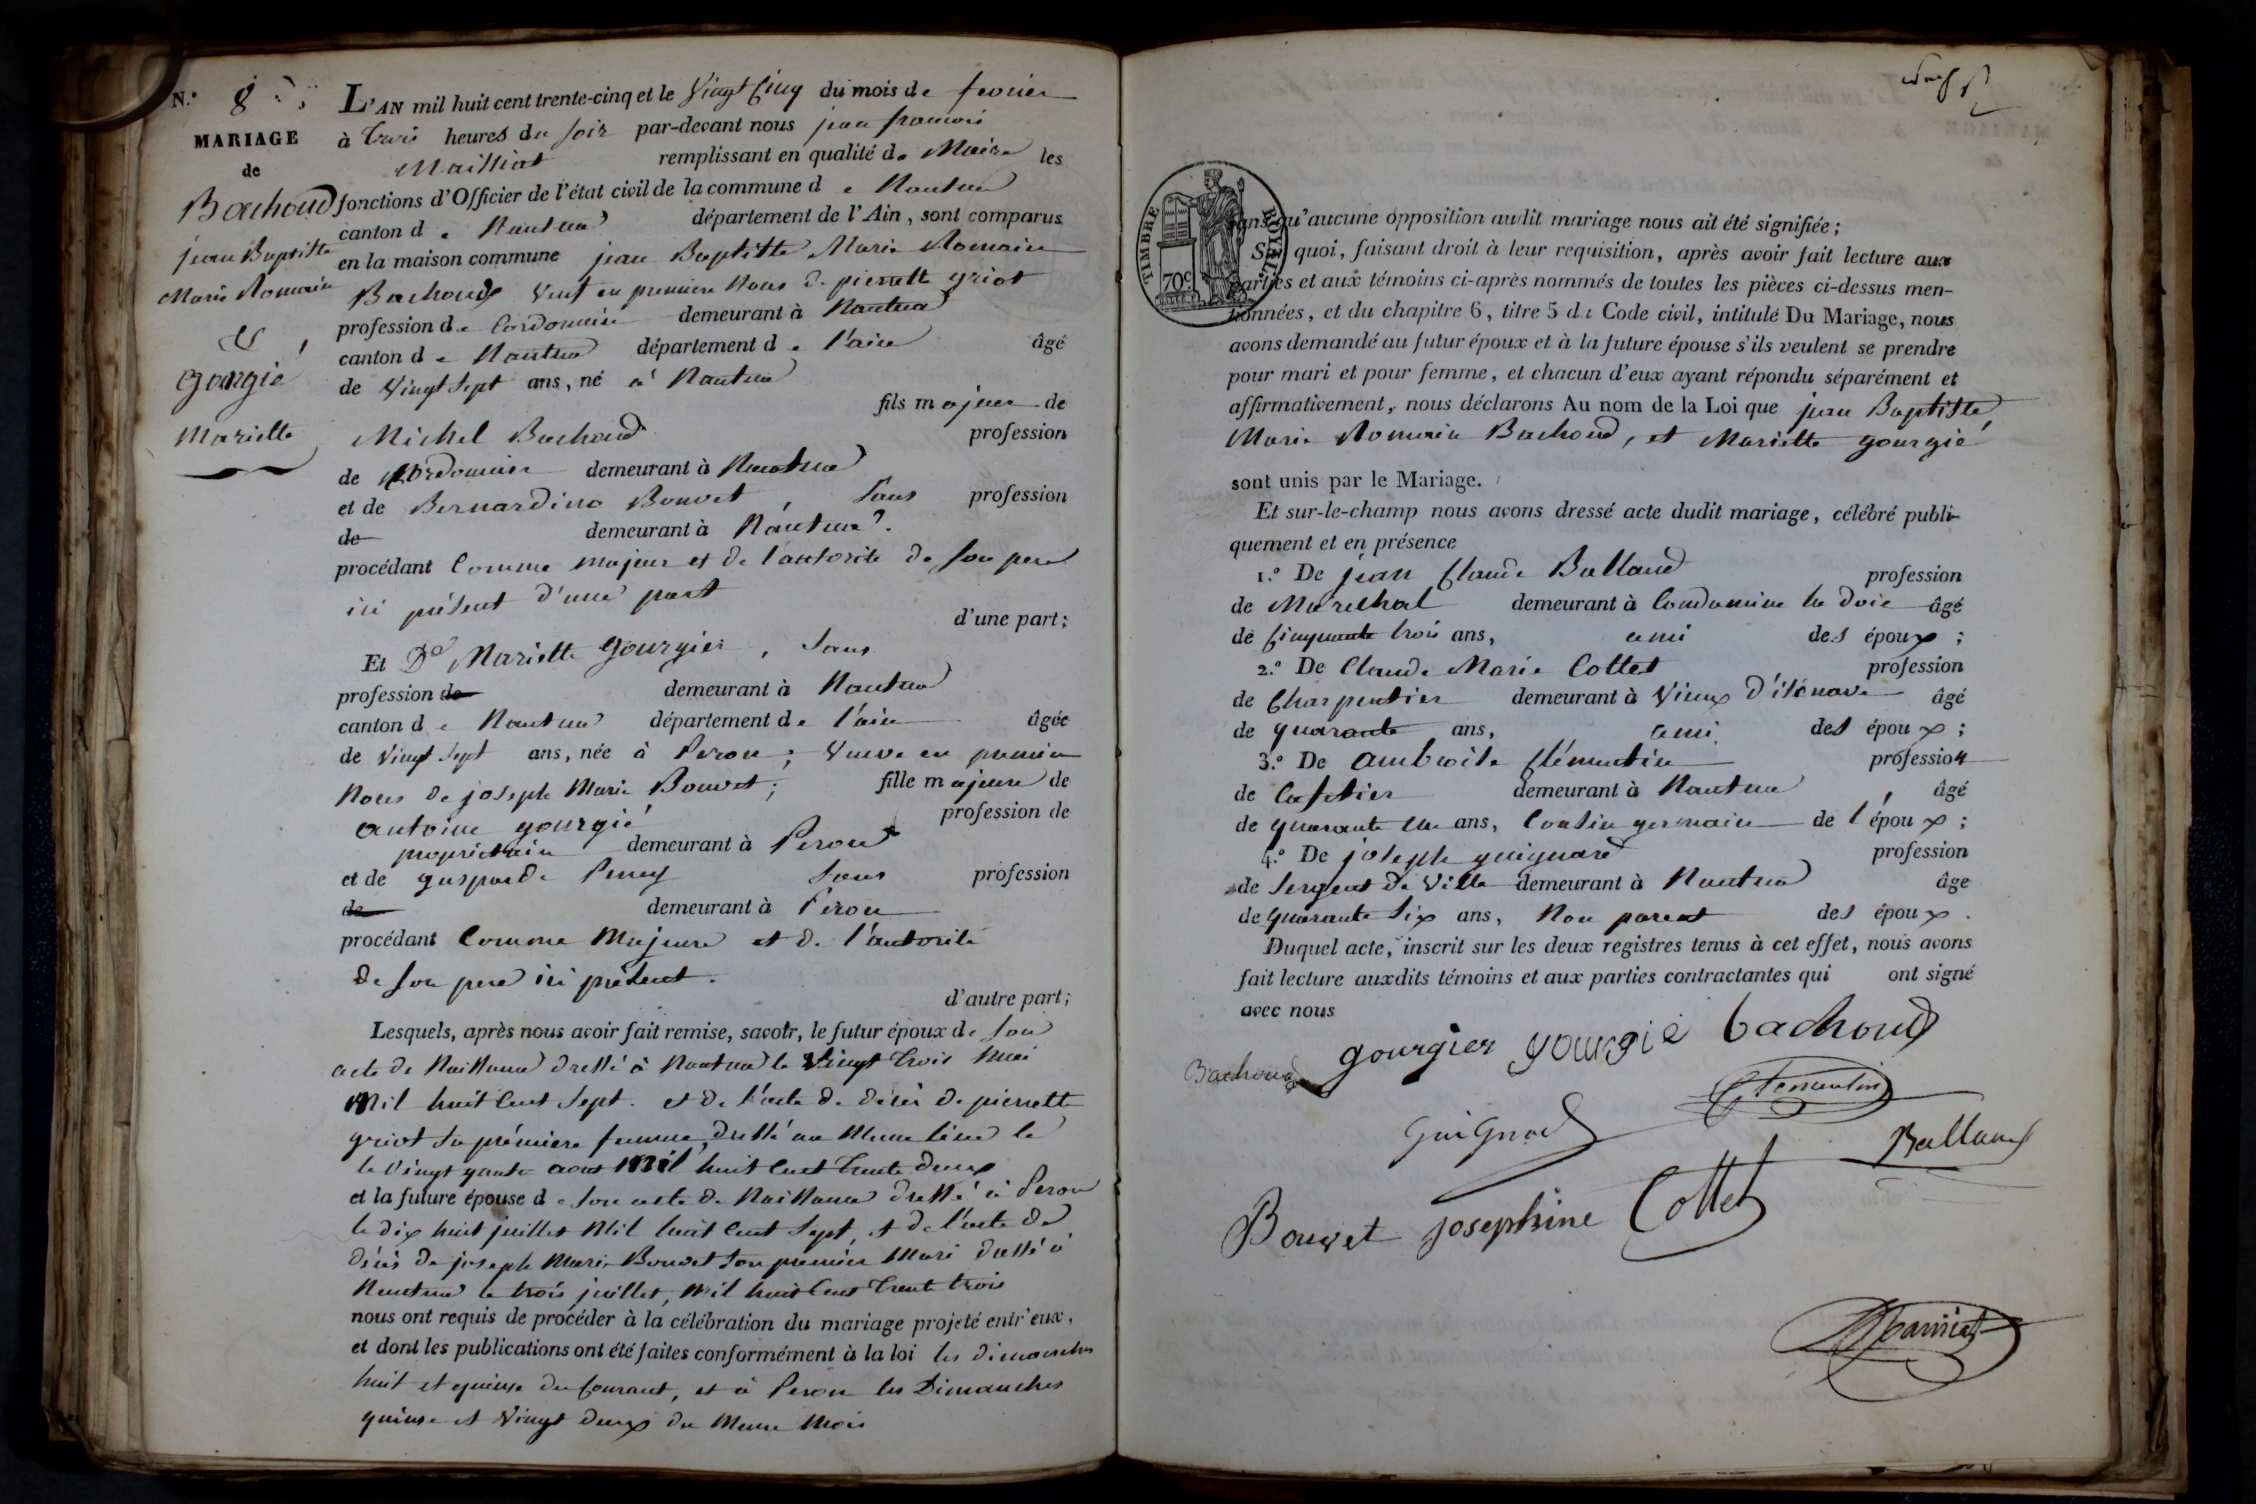 N.° 8
MARIAGE
de
Bachoud
jean Baptiste
Marie Romain
&
gourgié
Mariette
L'AN mil huit cent trente-cinq et le Vingt Cinq du mois de fevrier
à trois heures du soir par-devant nous jean francois
Mailliat remplissant en qualité de Maire les
fonctions d'Officier de l'état civil de la commune de Nantua
canton de Nantua département de l'Ain, sont comparus
en la maison commune jean Baptiste Marie Romain
Bachoud veuf en premiere Noces de pierrette griot
profession de Cordonnier demeurant à Nantua
canton de Nantua département de l'ain âgé
de Vingt Sept ans, né à Nantua
fils majeur de
Michel Bachoud profession
de Cordonnier demeurant à Nantua
et de Bernardine Bouvet, Sans profession
de demeurant à Nantua.
procédant Comme majeur et de l'autorité de son pere
ici présent d'une part
d'une part;
Et De Mariette gourgier, Sans
profession de demeurant à Nantua
canton de Nantua département de l'ain âgée
de vingt sept ans, née à Peron; Veuve en premier
Noces de joseph Marie Bouvet; fille majeure de
antoine gourgié profession de
proprietaire demeurant à Peron
et de gasparde Perrey Sans profession
de demeurant à Peron
procédant Comme Majeure et de l'autorité
de son pere ici présent.
d'autre part;
Lesquels, après nous avoir fait remise, savoir, le futur époux de son
acte de Naissance dressé à Nantua le Vingt trois Mai
Mil huit Cent Sept. et de l'acte de décès de pierrette
griot sa prémiere femme, dressé au Meme lieu le
le Vingt quatre aout Mil huit Cent trente deux
et la future épouse de son acte de Naissance dressé à Peron
le dix huit juillet Mil huit Cent Sept, et de l'acte de
décès de joseph Marie Bouvet son premier Mari dressé à
Nantua le trois juillet, Mil huit Cent trente trois
nous ont requis de procéder à la célébration du mariage projeté entr'eux,
et dont les publications ont été faites conformément à la loi les dimanches
huit et quinse du Courant, et à Peron les Dimanches
quinse et Vingt deux du Meme Mois
TIMBRE ROYAL
70c
sans qu'aucune opposition audit mariage nous ait été signifiée;
Sur quoi, faisant droit à leur requisition, après avoir fait lecture aux
parties et aux témoins ci-après nommés de toutes les pièces ci-dessus men-
tionnées, et du chapitre 6, titre 5 du Code civil, intitulé Du Mariage, nous
avons demandé au futur époux et à la future épouse s'ils veulent se prendre
pour mari et pour femme, et chacun d'eux ayant répondu séparément et
affirmativement, nous déclarons Au nom de la Loi que jean Baptiste
Marie Romain Bachoud, et Mariette gourgié
sont unis par le Mariage.
Et sur-le-champ nous avons dressé acte dudit mariage, célébré publi-
quement et en présence
1.° De jean Claude Balland profession
de Marechal demeurant à Condamine la doie âgé
de Cinquante trois ans, ami des époux;
2.° De Claude Marie Cottet profession
de Charpentier demeurant à Vieux d'isénave âgé
de quarante ans, ami des époux;
3.° De ambroise Clémentin profession
de Cafetier demeurant à Nantua, âgé
de quarante un ans, Cousin germain de l'époux;
4.° De joseph guignard profession
de Sergent de Ville demeurant à Nantua âge
de quarante Six ans, Non parent des époux.
Duquel acte, inscrit sur les deux registres tenus à cet effet, nous avons
fait lecture auxdits témoins et aux parties contractantes qui ont signé
avec nous
Bachoud gourgier gourgié bachoud
Clementin
Guignard
Balland
Bouvet josephine Cottet